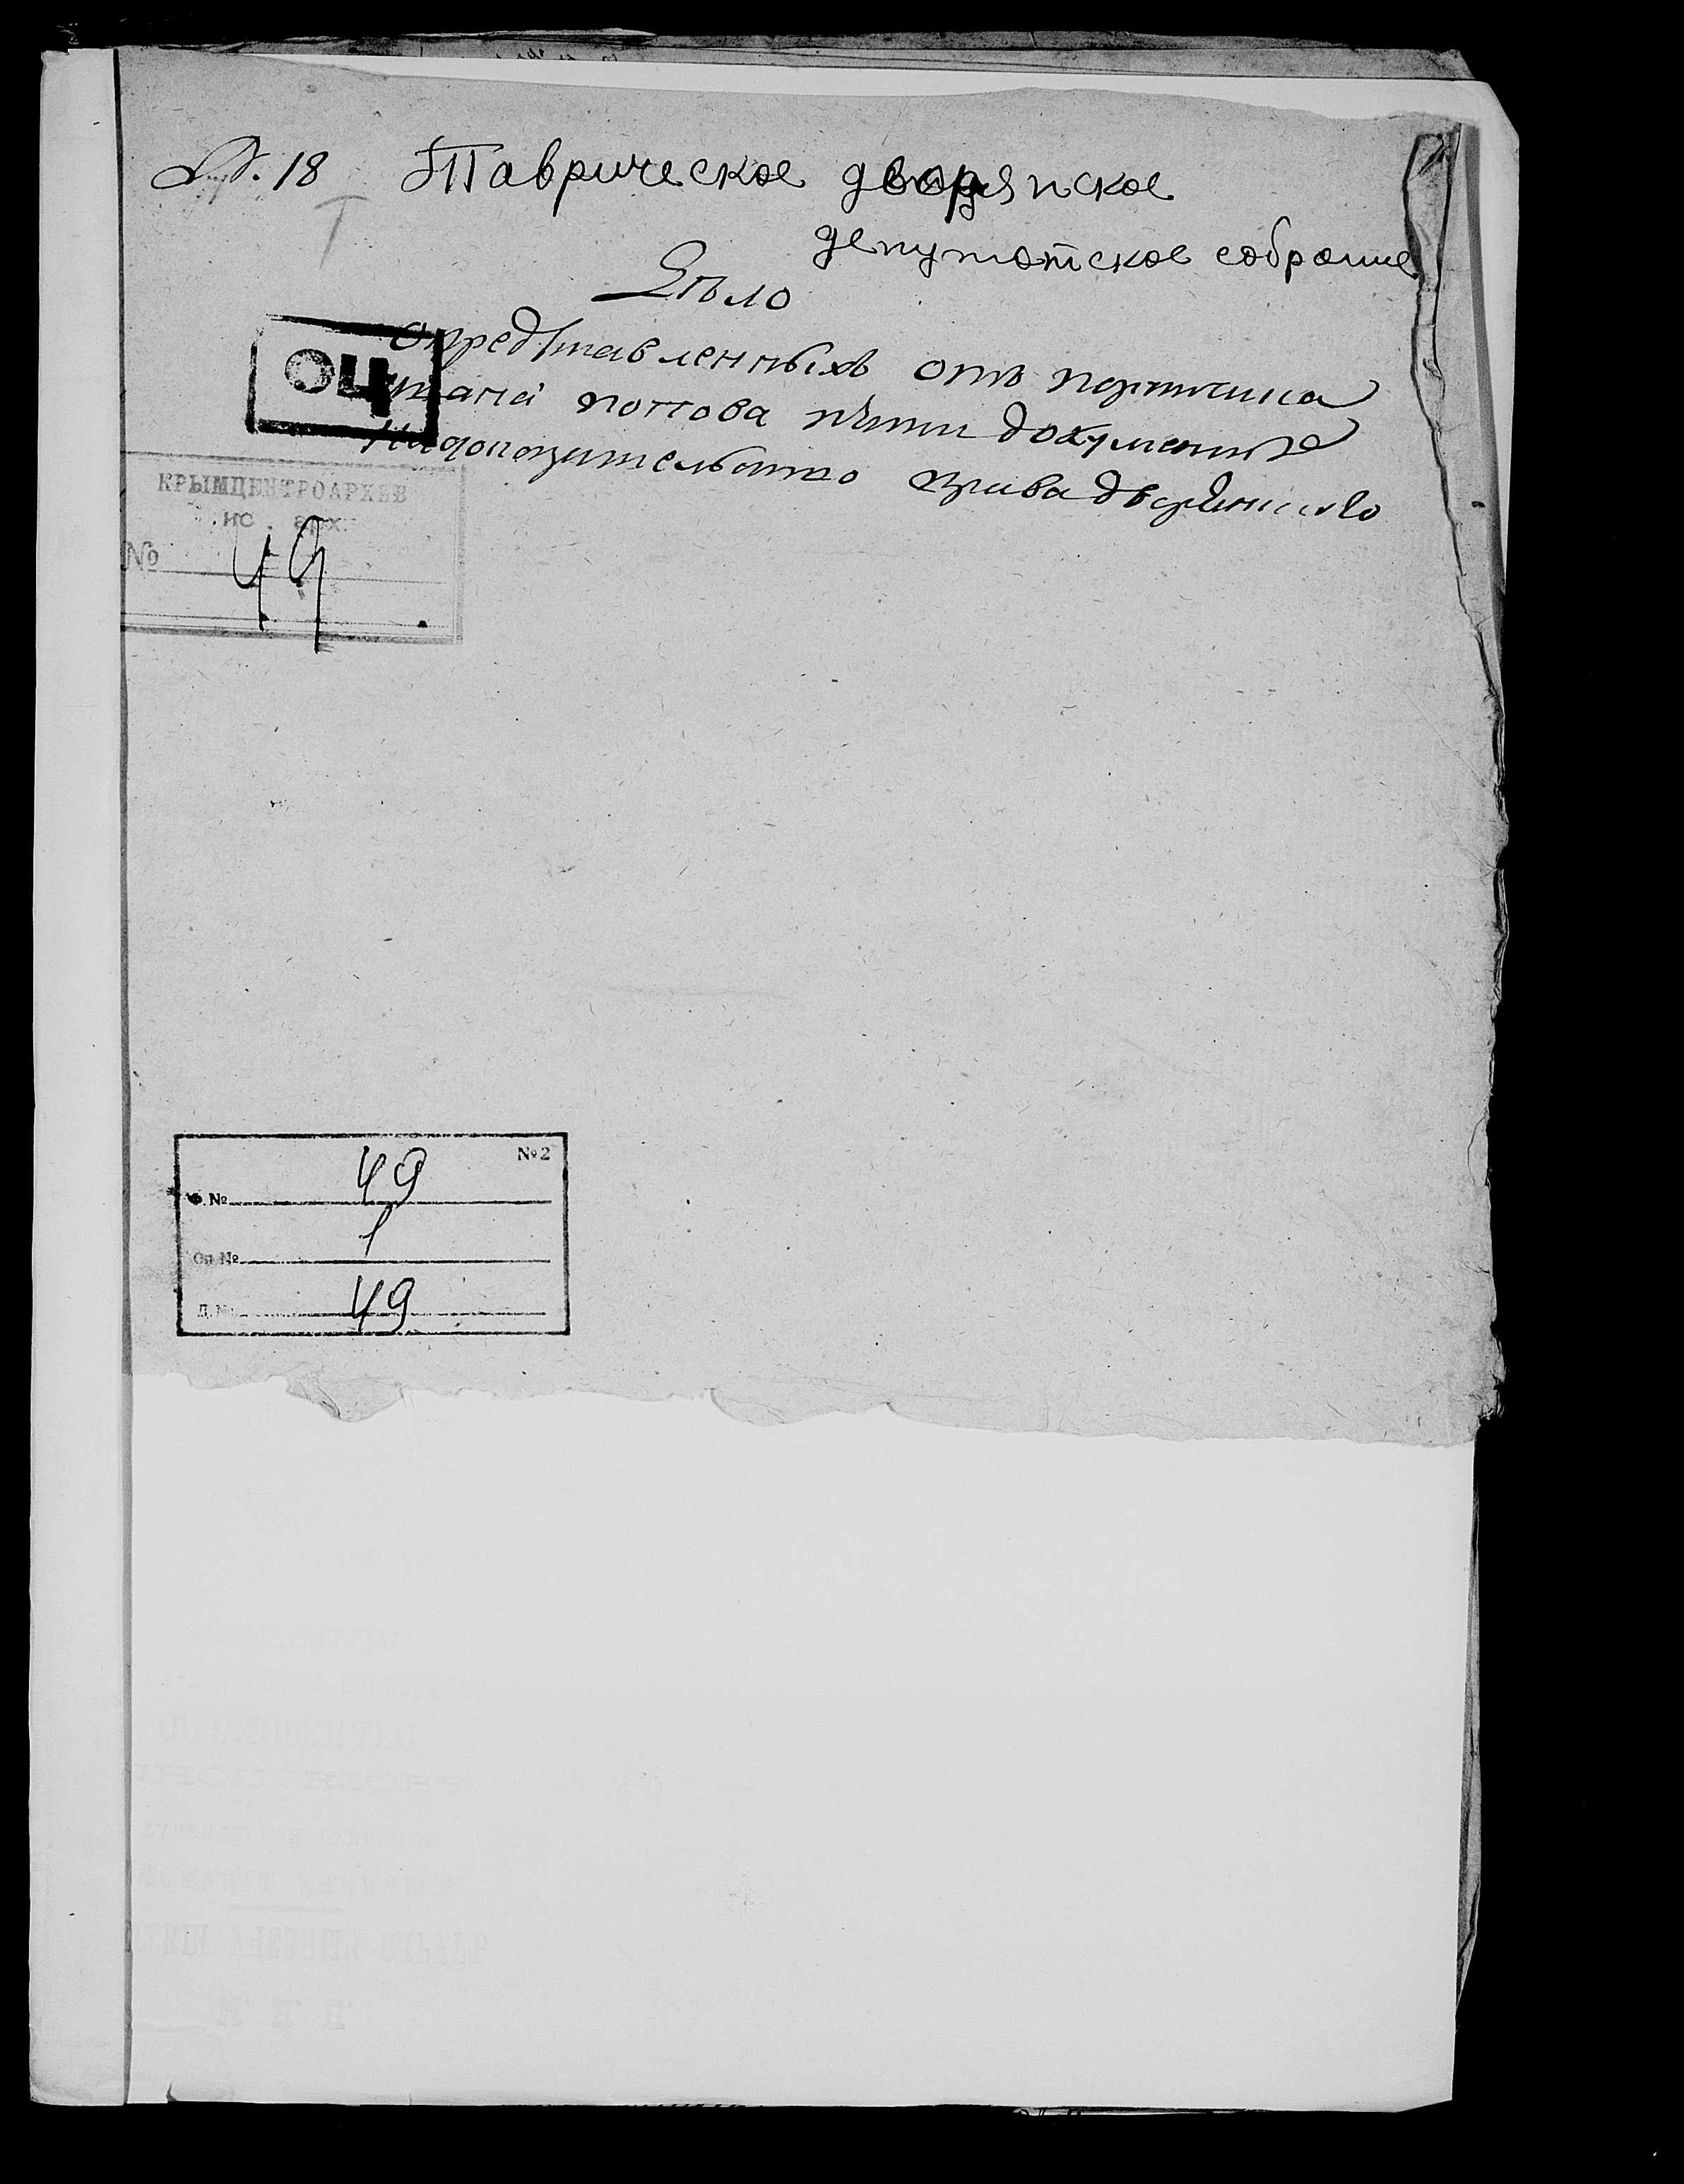 18 Таврическое дворянское
депутатское собрание
Дѣло
о представленныхъ отъ поручика
попова пяти документе
права дворянство
ОЦ
КРЫМЦЕНТРОАРХИВ
ис. арх.
№ 49
№2
Ф. № 49
Оп № 1
Д. № 49